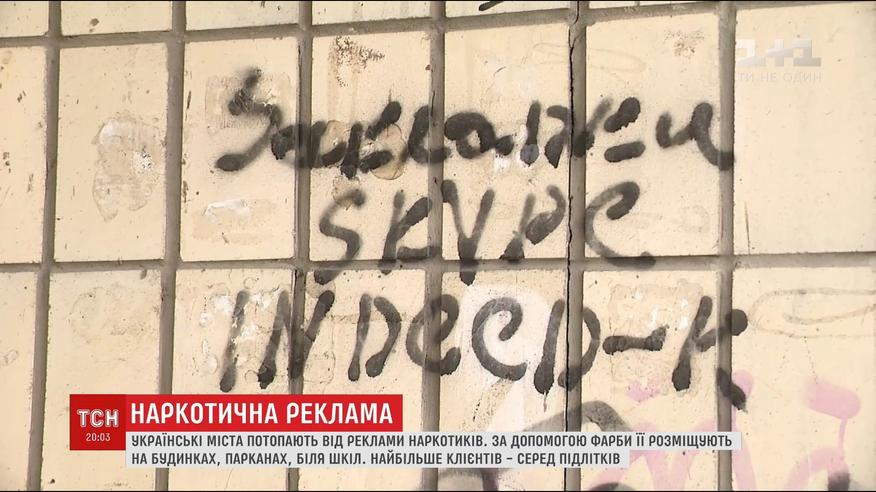 1+1
ТИ НЕ ОДИН
Закладки
SKYPE
INDECD-K
ТСН
20:03
НАРКОТИЧНА РЕКЛАМА
УКРАЇНСЬКІ МІСТА ПОТОПАЮТЬ ВІД РЕКЛАМИ НАРКОТИКІВ. ЗА ДОПОМОГОЮ ФАРБИ ЇЇ РОЗМІЩУЮТЬ
НА БУДИНКАХ, ПАРКАНАХ, БІЛЯ ШКІЛ. НАЙБІЛЬШЕ КЛІЄНТІВ – СЕРЕД ПІДЛІТКІВ